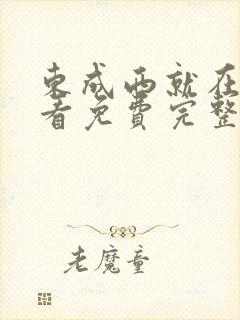 东成西就在
看免费完整
老魔童